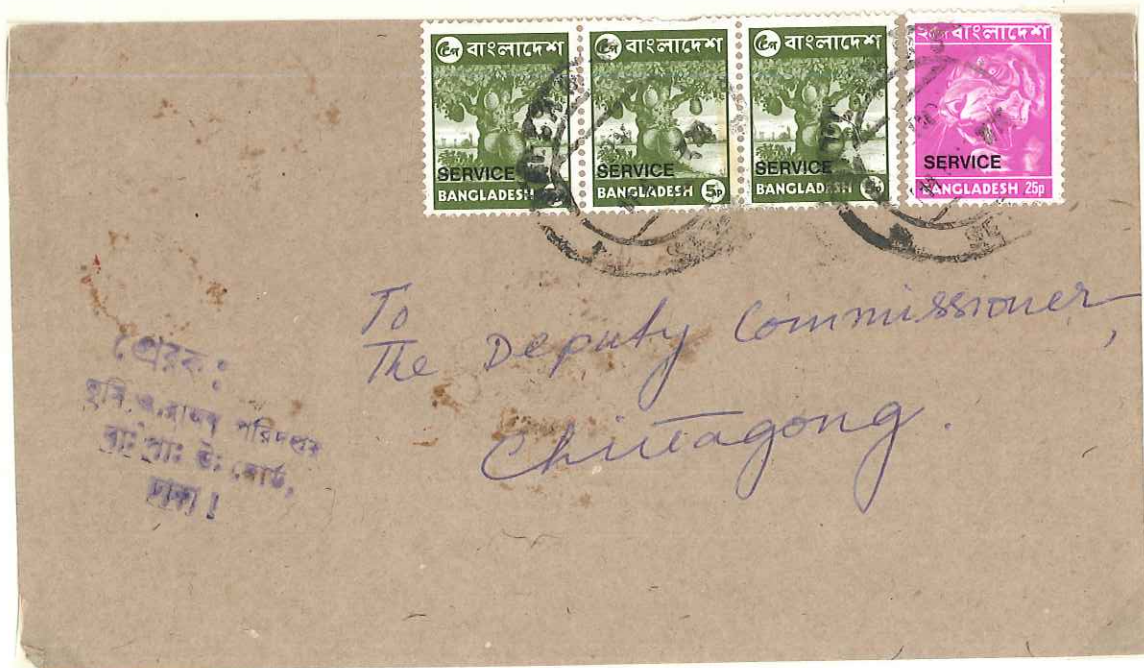 ৫প বাংলাদেশ
SERVICE
BANGLADESH
৫প বাংলাদেশ
SERVICE
BANGLADESH 5p
৫প বাংলাদেশ
SERVICE
BANGLADESH 5p
বাংলাদেশ
SERVICE
BANGLADESH 25p
To
The Deputy Commissioner,
Chittagong.
প্রেরক:
ভূমি ও রাজস্ব পরিদপ্তর
বাঃ পাঃ উঃ বোর্ড,
ঢাকা।